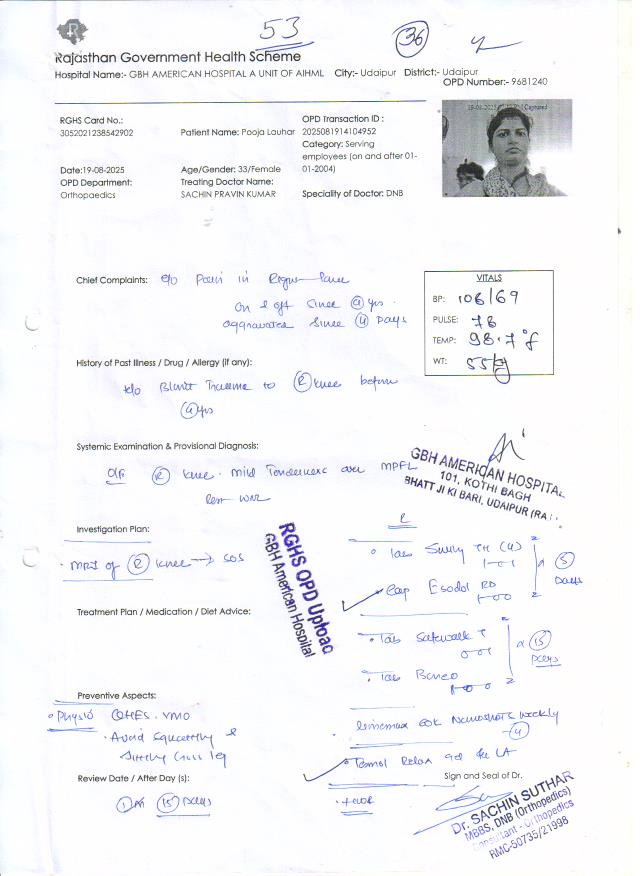 53
36
Rajasthan Government Health Scheme
Hospital Name:- GBH AMERICAN HOSPITAL A UNIT OF AIHML City:- Udaipur District:- Udaipur
OPD Number:- 9681240
RGHS Card No.:
3052021238542902
Patient Name: Pooja Lauhar
OPD Transaction ID :
2025081914104952
Category: Serving
employees (on and after 01-
01-2004)
Date:19-08-2025
Age/Gender: 33/Female
OPD Department:
Orthopaedics
Treating Doctor Name:
SACHIN PRAVIN KUMAR
Speciality of Doctor: DNB
Chief Complaints: c/o Pain in Right knee
on & off since 4 yrs.
aggravated since 4 Days
VITALS
BP: 106/69
PULSE: 78
TEMP: 98.7°f
WT: 55kg
History of Past Illness / Drug / Allergy (if any):
h/o Blunt Trauma to R knee before
4 yrs
Systemic Examination & Provisional Diagnosis:
O/E R knee. mild Tenderness over MPFL
Rest WNL
GBH AMERICAN HOSPITAL
101, KOTHI BAGH
BHATT JI KI BARI, UDAIPUR
Investigation Plan:
MRI of R knee → SOS
RGHS OPD Upload
GBH American Hospital
Tab
1-0-1
x 5 Days
Cap Esodol RD
1-0-0
Treatment Plan / Medication / Diet Advice:
Tab Safewalk T
0-0-1
x 15 Days
Tab
1-0-0
Preventive Aspects:
Physio QHES. VMO
Avoid Squatting &
Sitting Cross leg
60k Nanoshots weekly
4
Relax gel for LA
Review Date / After Day (s):
15 Days
Sign and Seal of Dr.
Dr. SACHIN SUTHAR
MBBS, DNB (Orthopedics)
Consultant - Orthopedics
RMC-50735/21998